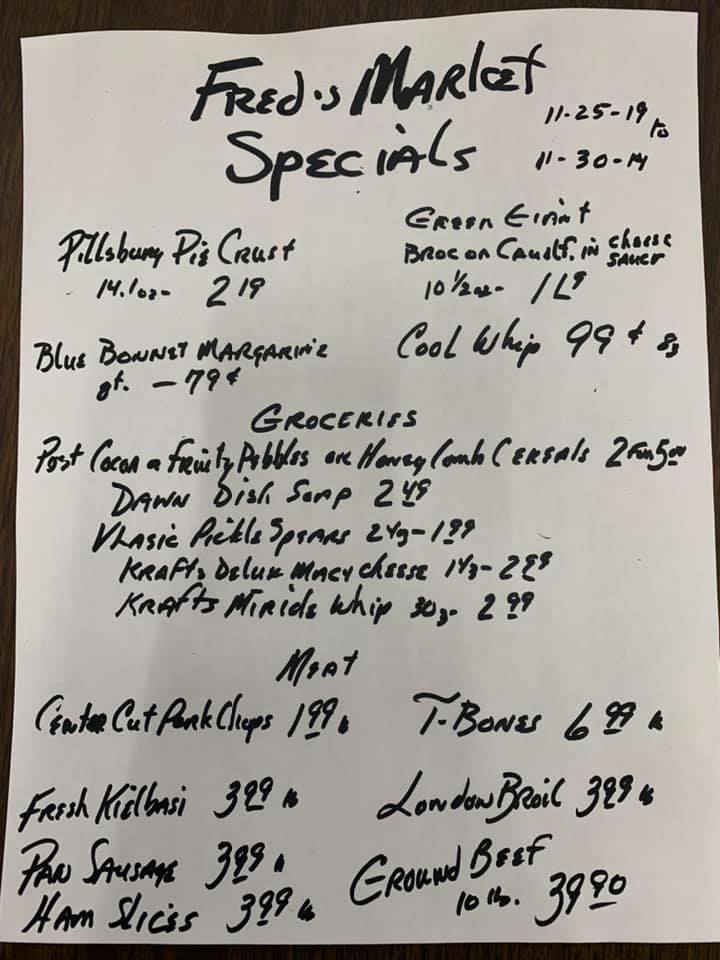 FRED'S MARKET
SPECIALS
11-25-19 to
11-30-19
Pillsbury Pie Crust
14.1oz- 2 19
GREEN GIANT
BROC OR CAULIF. in cheese
SAUCE
10 1/2 oz-
BLUE BONNET MARGARINE
qt. - 79¢
COOL Whip 99¢ 8z
GROCERIES
Post Cocoa or Fruity Pebbles or Honey Comb CEREALS 2 For 5 00
DAWN Dish Soap 2 49
VLASIC Pickle SPEARS 24z- 1 99
KRAFTS DELUX MAC y cheese 14z- 2 99
KRAFTS Miricle Whip 30z- 2 99
MEAT
Center Cut Pork Chops 1 99 lb
T-BONES 6 99 lb
FRESH Kielbasi 3 99 lb
LONDON BROIL 3 99 lb
PAN SAUSAGE 3 99 lb
GROUND BEEF
10 lb. 39 90
HAM Slices 3 99 lb